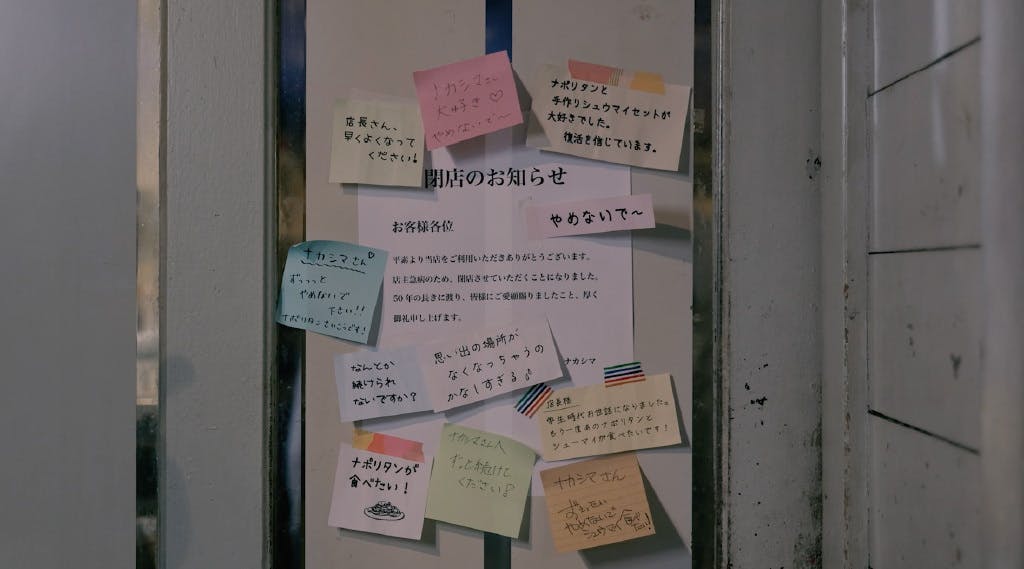 ナカシマさん
大好き♡
やめないで～
ナポリタンと
手作りシュウマイセットが
大好きでした。
復活を信じています。
店長さん、
早くよくなって
ください!
閉店のお知らせ
やめないで～
お客様各位
平素より当店をご利用いただきありがとうございます。
店主急病のため、閉店させていただくことになりました。
50年の長きに渡り、皆様にご愛顧賜りましたこと、厚く
御礼申し上げます。
ナカシマ
ナカシマさん♡
ずっっっと
やめないで
下さい!!
ナポリタンさいこうです!
なんとか
続けられ
ないですか?
思い出の場所が
なくなっちゃうの
かなしすぎる
店長様
学生時代お世話になりました。
もう一度あのナポリタンと
シューマイが食べたいです!
ナポリタンが
食べたい!
ナカシマさん
ずっと続けて
ください
ナカシマさん
やめないで
シュウマイ食べたい!